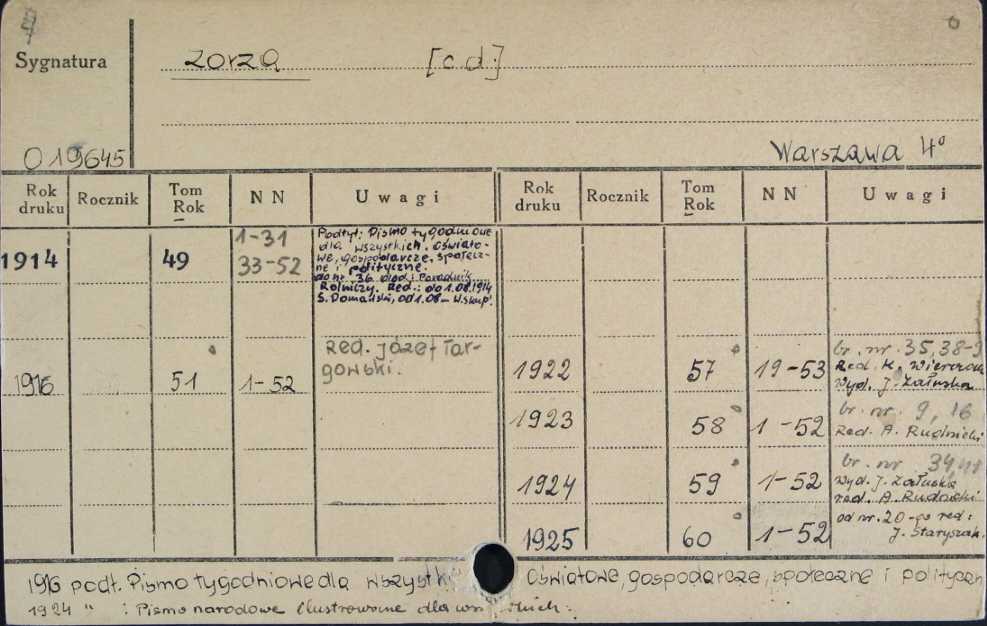 Sygnatura
Zorza [c d.]
019645
Warszawa 4°
Rok druku Rocznik Tom Rok N N Uwagi Rok druku Rocznik Tom Rok N N Uwagi
1914 49 1-31 33-52
Podtyt: Pismo tygodniowe
dla wszystkich. oświato-
we, gospodarcze, społecz-
ne i polityczne.
do nr. 36. dod: Poradnik
Rolniczy. Red.: do 1.08.1914
S. Domański, od 1.08 - W.
1916 51 1-52
Red. Józef Tar-
gowski.
1922 57 19-53
br. nr. 35, 38-9
Red. K.
Wyd. J. Załuska
1923 58 1-52
br. nr. 9, 16
Red. A. Rudnicki
1924 59 1-52
br. nr 34,
Wyd. J. Załuska
red. A. Rudnicki
1925 60 1-52
od nr. 20-go red:
J. Staryszak.
1916 podt. Pismo tygodniowe dla Oświatowe, gospodarcze, społeczne i
1924 " : Pismo narodowe ilustrowane dla